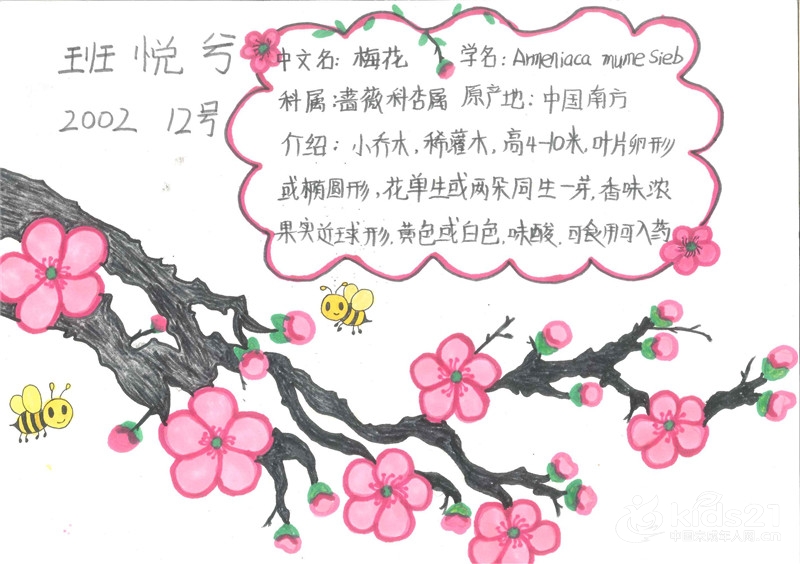 班悦兮
2002 12号
中文名：梅花 学名：Armeniaca mume Sieb
科属：蔷薇科杏属 原产地：中国南方
介绍：小乔木，稀灌木，高4-10米，叶片卵形
或椭圆形，花单生或两朵同生一芽，香味浓
果实近球形，黄色或白色，味酸，可食用可入药
kids21
中国未成年人网.cn